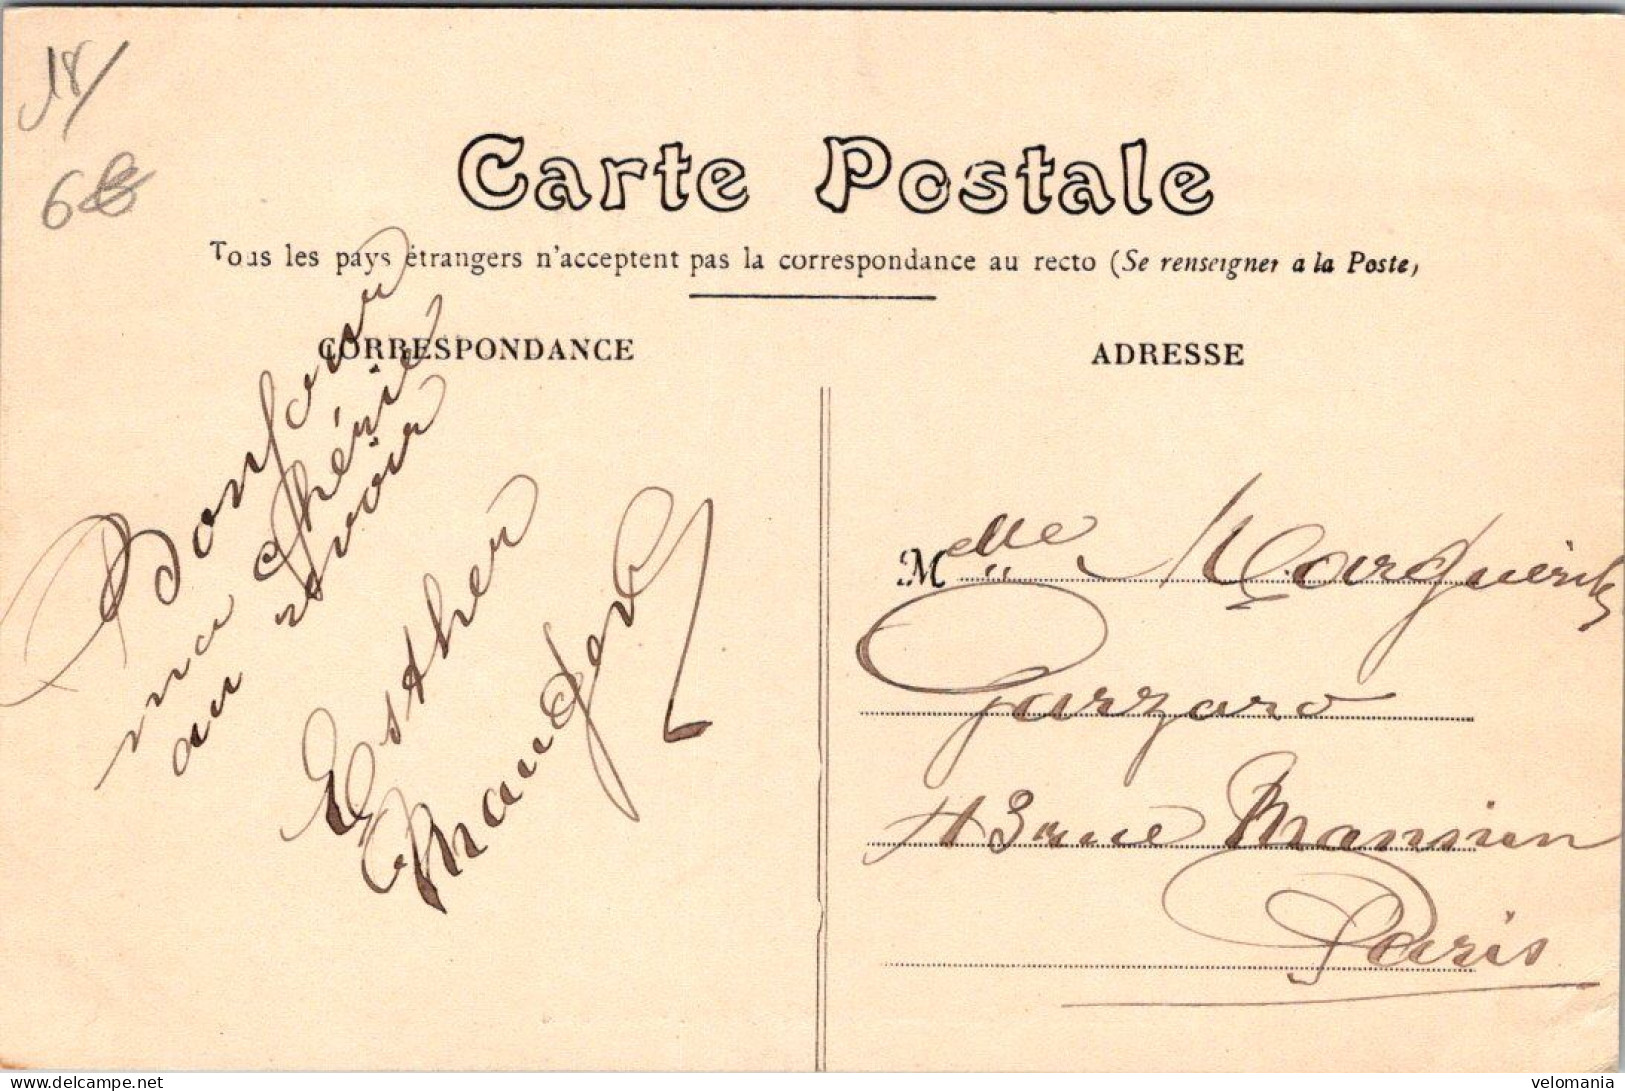 18/
6€
Carte Postale
Tous les pays étrangers n'acceptent pas la correspondance au recto (Se renseigner a la Poste)
CORRESPONDANCE
Bonjour
ma Chérie
au revoir
Esther
ADRESSE
Melle Marguerite
Garzaro
13 rue
Paris
delcampe.net
velomania